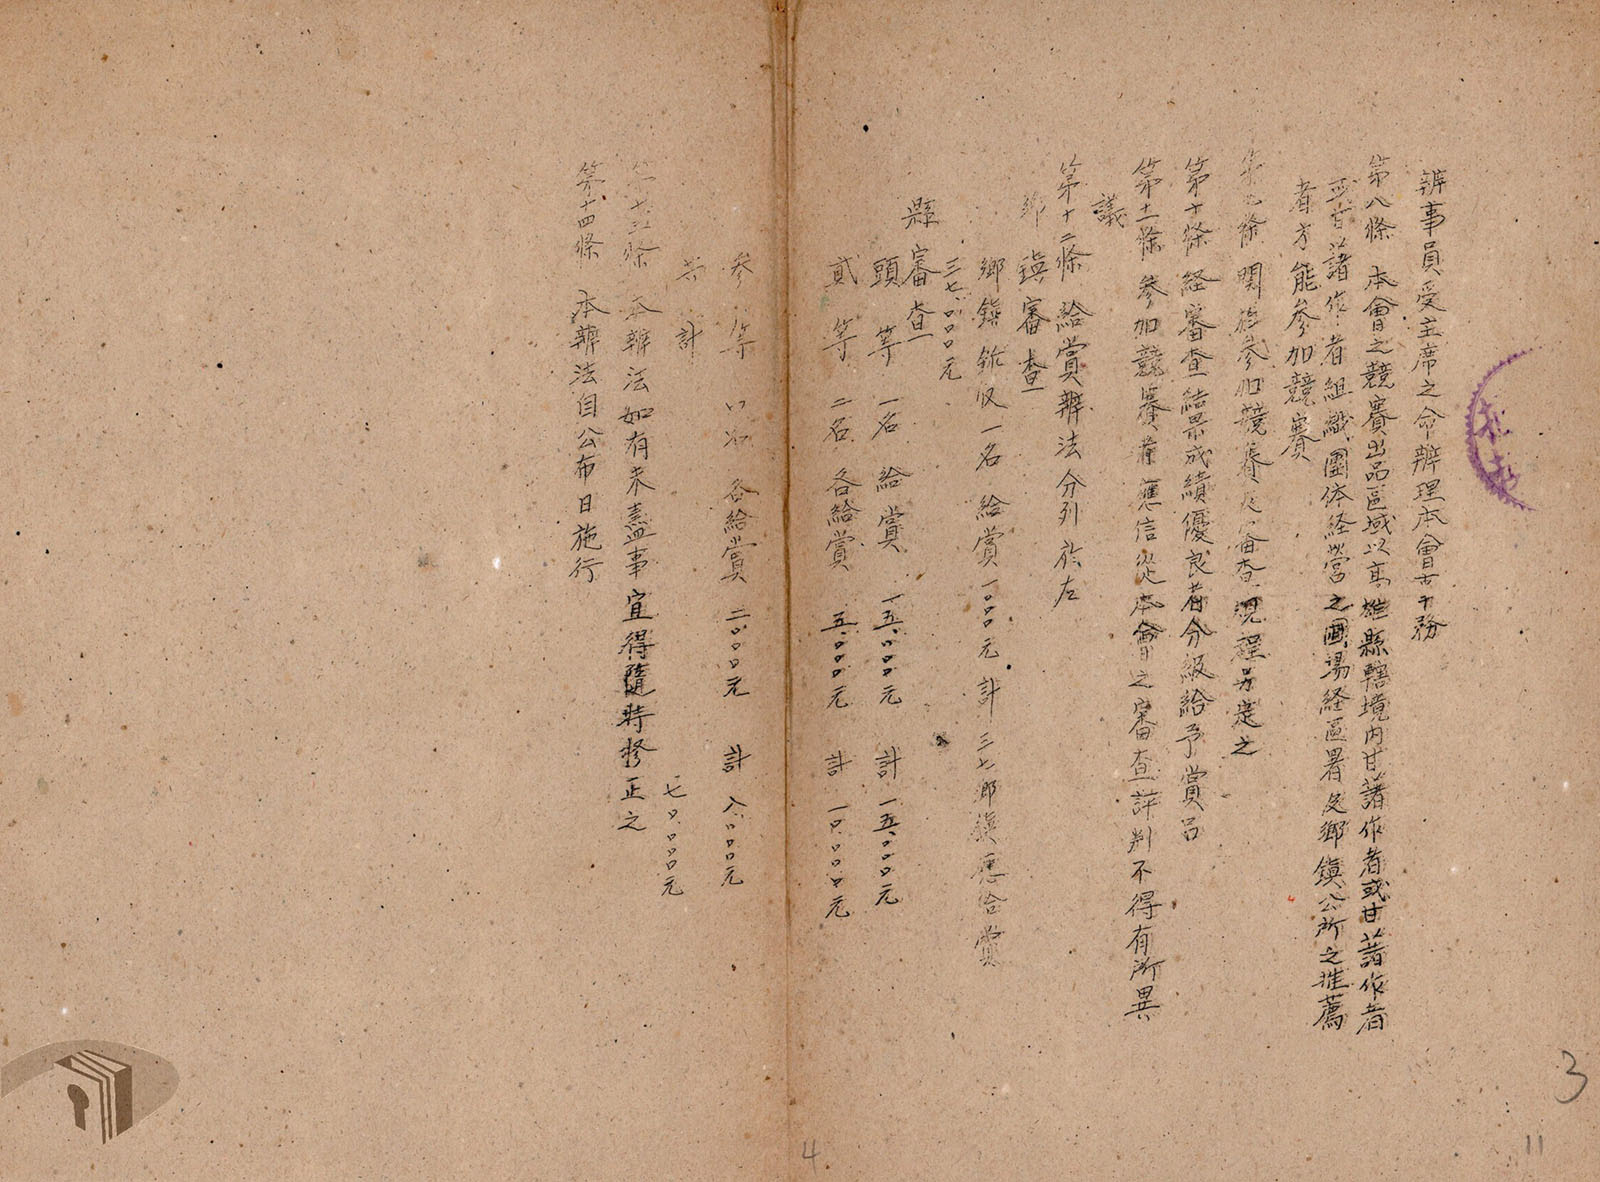 辨事員受主席之命辨理本會古干務
第八條 本會之競賽出品區域以高雄縣轄境內甘藷作者或甘藷作者
或甘藷作者組織團体経營之圃場経區署及鄉鎮公所之推薦
者方能參加競賽
第九條 関於參加競賽及審查規程另定之
第十條 経審查結果成績優良者分級給予賞品
第十一條 參加競賽者應信從本會之審查評判不得有所異
議
第十二條 給賞辨法分列於左
鄉鎮審查
鄉鎮 一名 給賞 一〇〇〇元 計 三七鄉鎮應給賞
三七.〇〇〇元
縣審查
頭等 一名 給賞 一五.〇〇〇元 計 一五.〇〇〇元
貳等 二名 各給賞 五.〇〇〇元 計 一〇.〇〇〇元
參等 名 各給賞 二.〇〇〇元 計 八.〇〇〇元
共計 七〇.〇〇〇元
第十三條 本辨法如有未盡事宜得隨時修正之
第十四條 本辨法自公布日施行
3
4
11